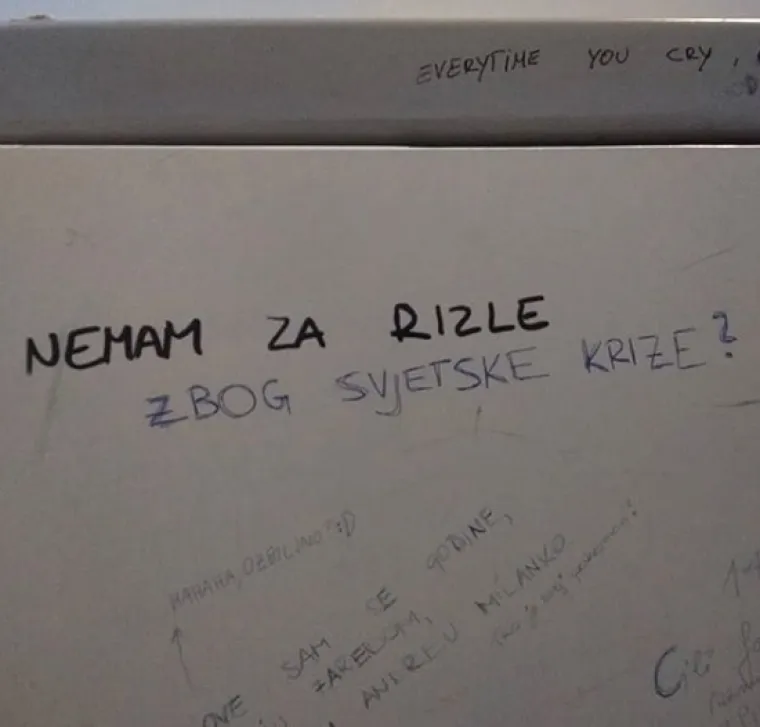 EVERYTIME YOU CRY,
NEMAM ZA RIZLE
ZBOG SVJETSKE KRIZE?
HAHAHA, OZBILJNO? :D
OVE SAM SE GODINE,
ZAREDOM,
MILANKO